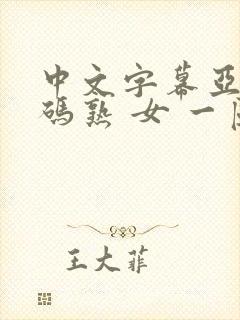 中文字幕亞
碼熟女一
王大菲